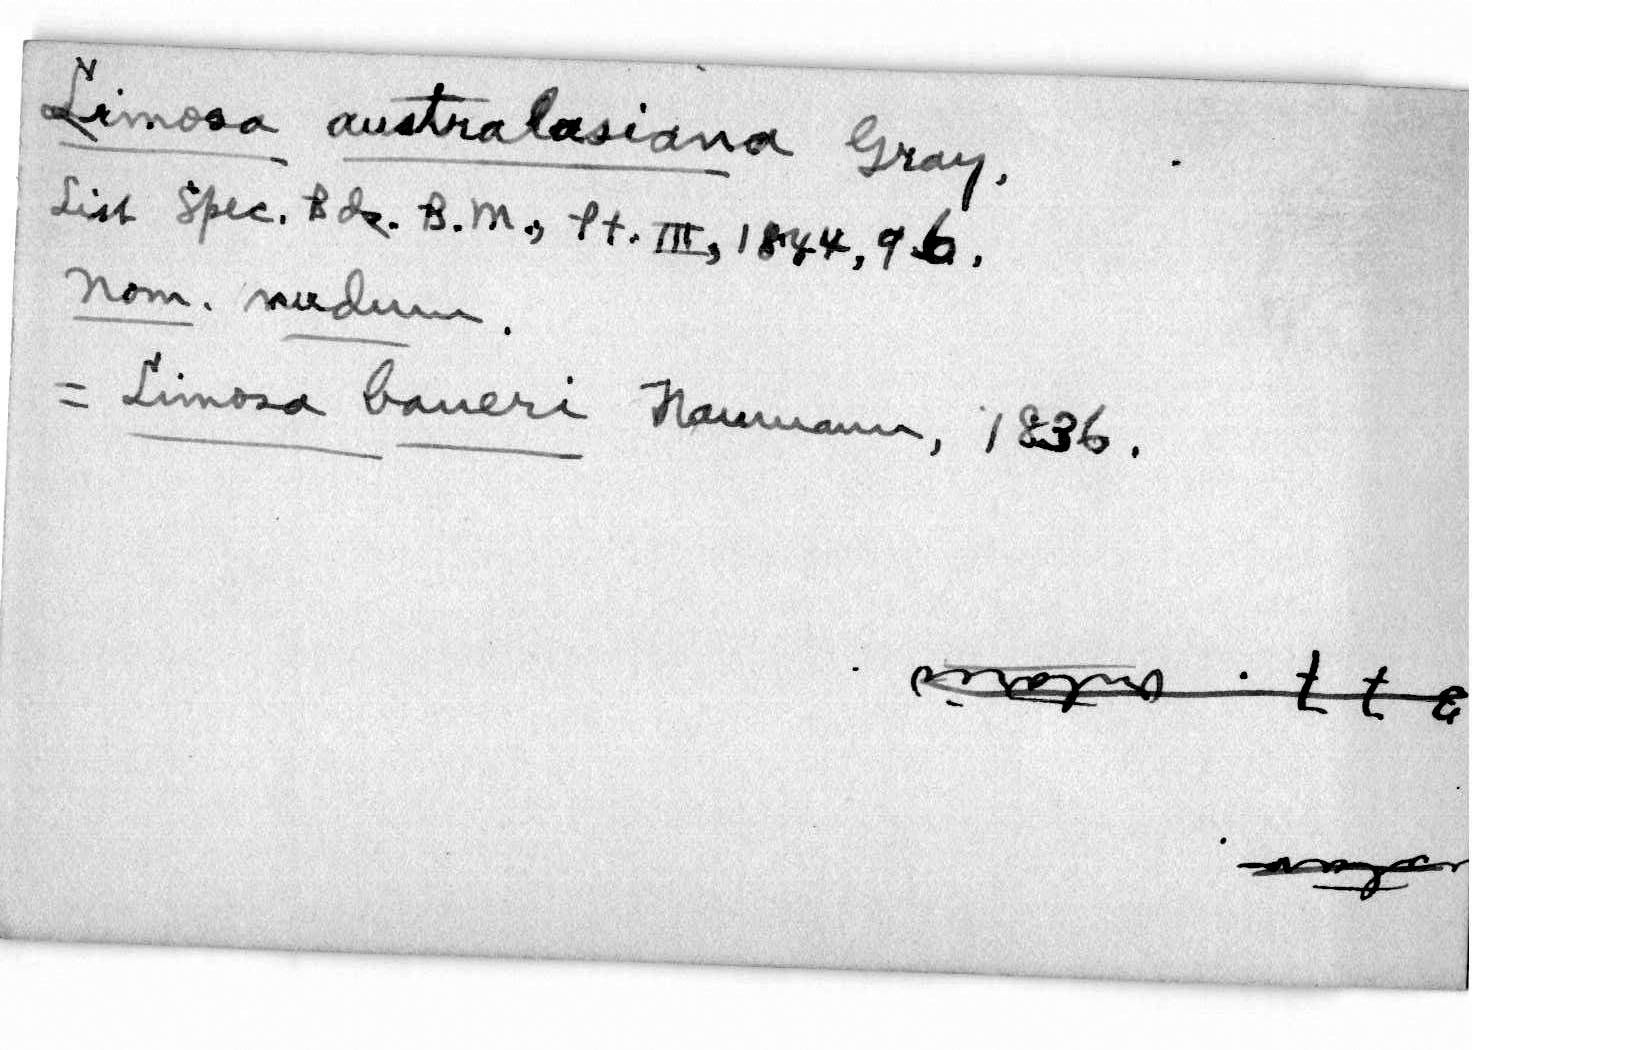 Limosa australasiana Gray.
List Spec. Bds. B.M., Pt. III, 1844, 96.
Nom. nudum.
= Limosa baueri Naumann, 1836.